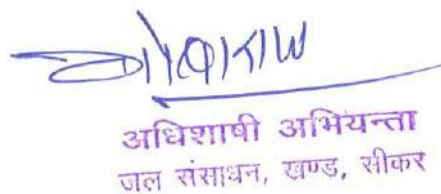 अधिशाषी अभियन्ता
जल संसाधन, खण्ड, सीकर